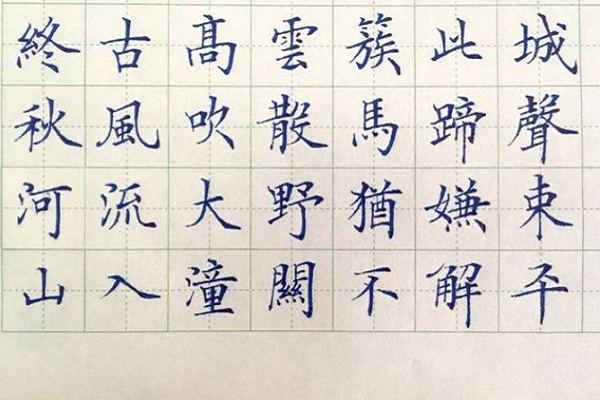 終古高雲簇此城
秋風吹散馬蹄聲
河流大野猶嫌束
山入潼關不解平